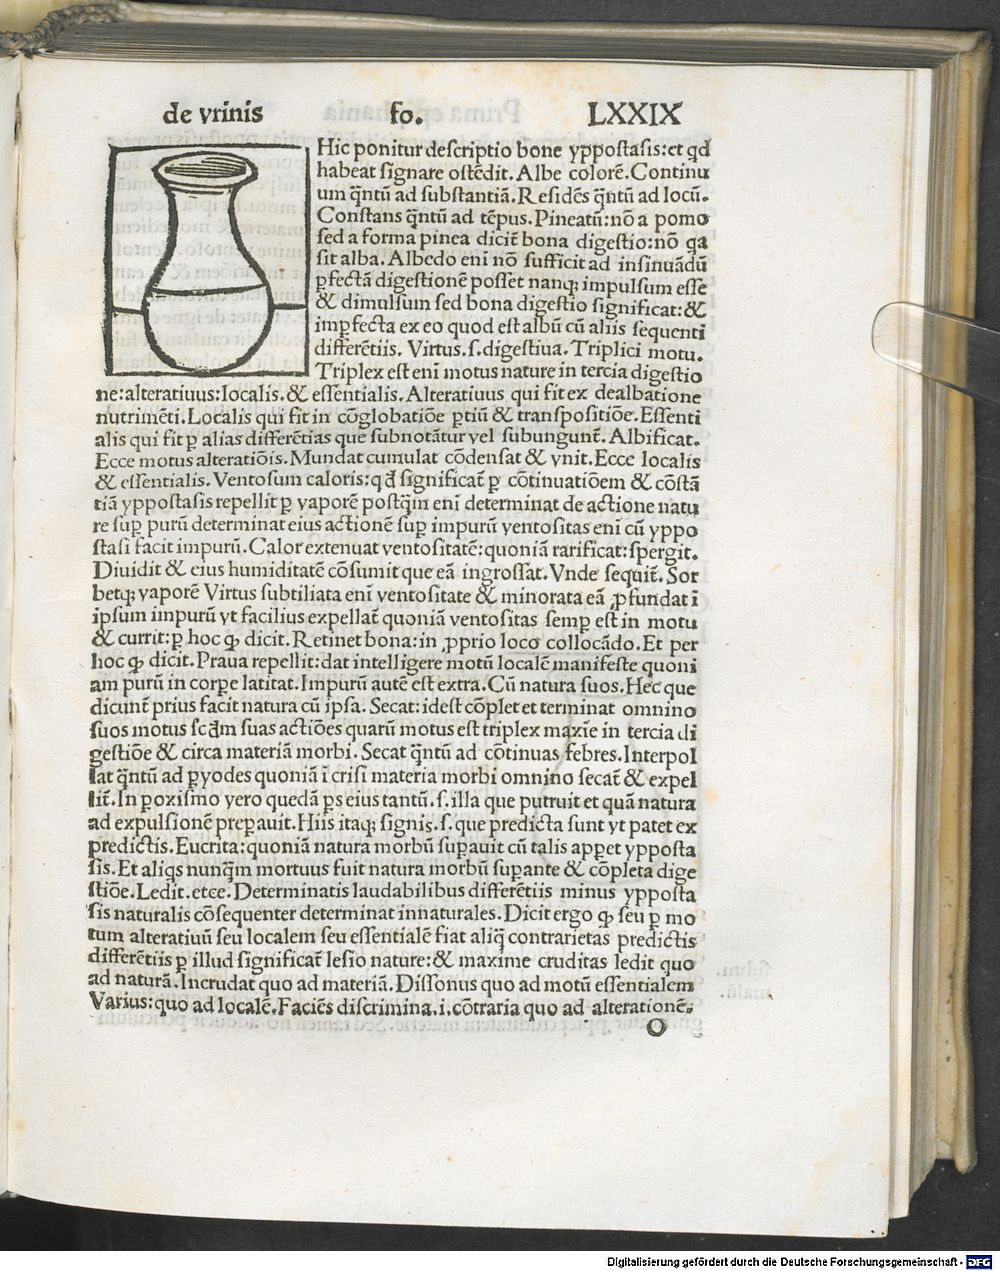 de vrinis fo. LXXIX
Hic ponitur descriptio bone yppostasis:et qd̄
habeat signare ostēdit. Albe colorē. Continu
um q̄ntū ad substantiā. Residēs q̄ntū ad locū.
Constans q̄ntū ad tēpus. Pineatū:nō a pomo
sed a forma pinea dicit̄ bona digestio:nō qa
sit alba. Albedo eni nō sufficit ad insinuādū
ꝑfectā digestionē posset nanqꝫ impulsum esse
& dimulsum sed bona digestio significat:&
imꝑfecta ex eo quod est albū cū aliis sequenti
differētiis. Virtus.s.digestiua. Triplici motu.
Triplex est eni motus nature in tercia digestio
ne:alteratiuus:localis.& essentialis. Alteratiuus qui fit ex dealbatione
nutrimēti. Localis qui fit in cōglobatiōe ꝑtiū & transpositiōe. Essenti
alis qui fit ꝑ alias differētias que subnotātur vel subungunt̄. Albificat.
Ecce motus alteratiōis. Mundat cumulat cōdensat & vnit. Ecce localis
& essentialis. Ventosum caloris:qd̄ significat̄ ꝑ cōtinuatiōem & cōstā
tiā yppostasis repellit ꝑ vaporē postq̄m eni determinat de actione natu
re suꝑ purū determinat eius actionē suꝑ impurū ventositas eni cū yppo
stasi facit impurū. Calor extenuat ventositatē:quoniā rarificat:spergit.
Diuidit & eius humiditatē cōsumit que eā ingrossat. Vnde sequit̄. Sor
betqꝫ vaporē Virtus subtiliata eni ventositate & minorata eā ꝓfundat i
ipsum impurū vt facilius expellat̄ quoniā ventositas semꝑ est in motu
& currit:ꝑ hoc ꝙ dicit. Retinet bona:in ꝓprio loco collocādo. Et per
hoc ꝙ dicit. Praua repellit:dat intelligere motū localē manifeste quoni
am purū in corꝑe latitat. Impurū autē est extra. Cū natura suos. Hec que
dicunt̄ prius facit natura cū ipsa. Secat:idest cōplet et terminat omnino
suos motus scd̄m suas actiōes quarū motus est triplex maxīe in tercia di
gestiōe & circa materiā morbi. Secat q̄ntū ad cōtinuas febres. Interpol
lat q̄ntū ad ꝑyodes quoniā ī crisi materia morbi omnino secat̄ & expel
lit̄. In ꝓoximo vero quedā ꝑs eius tantū.s.illa que putruit et quā natura
ad expulsionē preꝑauit. Hiis itaqꝫ signis.s.que predicta sunt vt patet ex
predictis. Eucrita:quoniā natura morbū suꝑauit cū talis apꝑet yppostа
sis. Et aliq̄s nunq̄m mortuus fuit natura morbū suꝑante & cōpleta dige
stiōe. Ledit.etce. Determinatis laudabilibus differētiis minus yppostа
sis naturalis cōsequenter determinat innaturales. Dicit ergo ꝙ seu ꝑ mo
tum alteratiuū seu localem seu essentialē fiat aliq̄ contrarietas predictis
differētiis ꝑ illud significat̄ lesio nature:& maxime cruditas ledit quo
ad naturā. Incrudat quo ad materiā. Dissonus quo ad motū essentialem
Varius:quo ad localē. Faciēs discrimina.i.cōtraria quo ad alterationē.
O
Digitalisierung gefördert durch die Deutsche Forschungsgemeinschaft - DFG